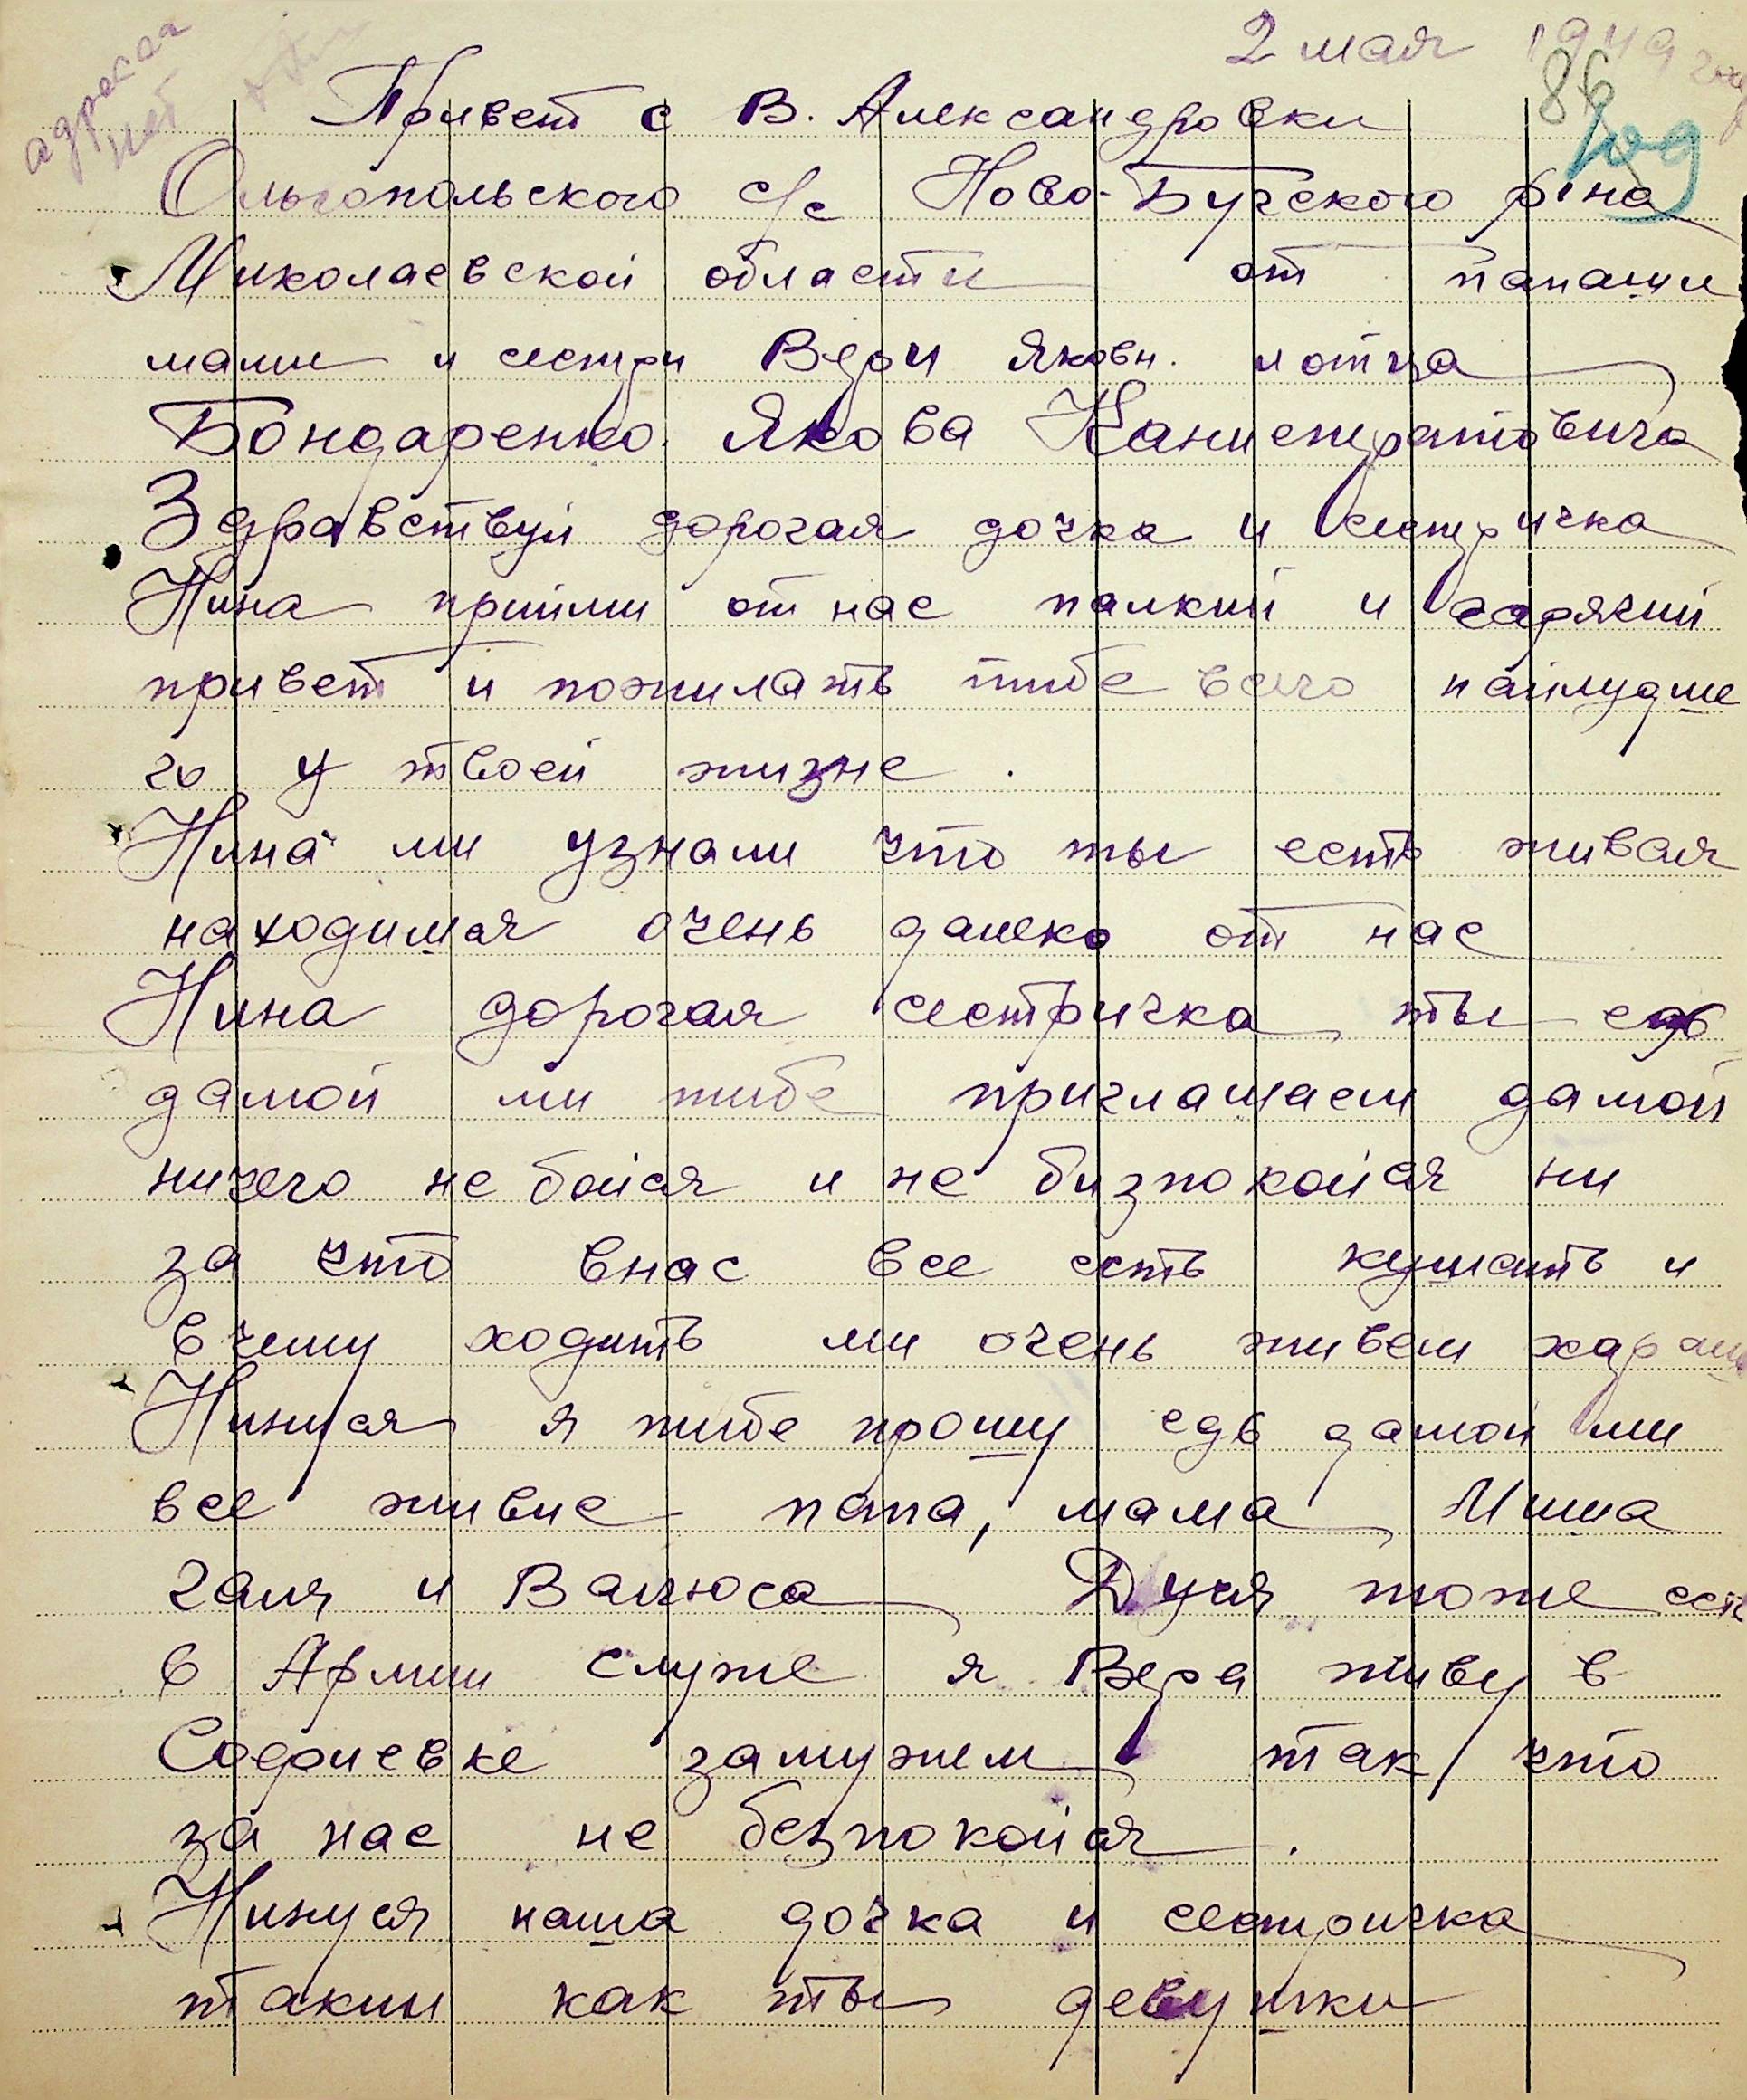 адресая
нет
2 мая 1949 году
86
год
Привет с В. Александровки
Ольгопольского с/с Ново-Бугского р-на
Миколаевской области от папаши
мами и сестри Вери Яковн. и отца
Бондаренко Якова Канистратовича
Здравствуй дорогая дочка и сестричка
Нина прийми от нас палкий и гарячий
привет и пожилать тибе всего найлудше
го у твоей жизне .
Нина ми узнали что ты есть живая
находишся очень далеко от нас
Нина дорогая сестричка ты едь
дамой ми тибе приглашаем дамой
ничего не бойся и не бизпокойся ни
за что внас все есть кушать и
в чему ходить ми очень живем хараш
Нинуся я тибе прошу едь дамой ми
все живие папа, мама Миша
Галя и Валюса Дуня тоже есть
в Армии служе я Вера живу в
Софиевке замужем так что
за нас не безпокойся .
Нинуся наша дочка и сестричка
такии как ты девушки